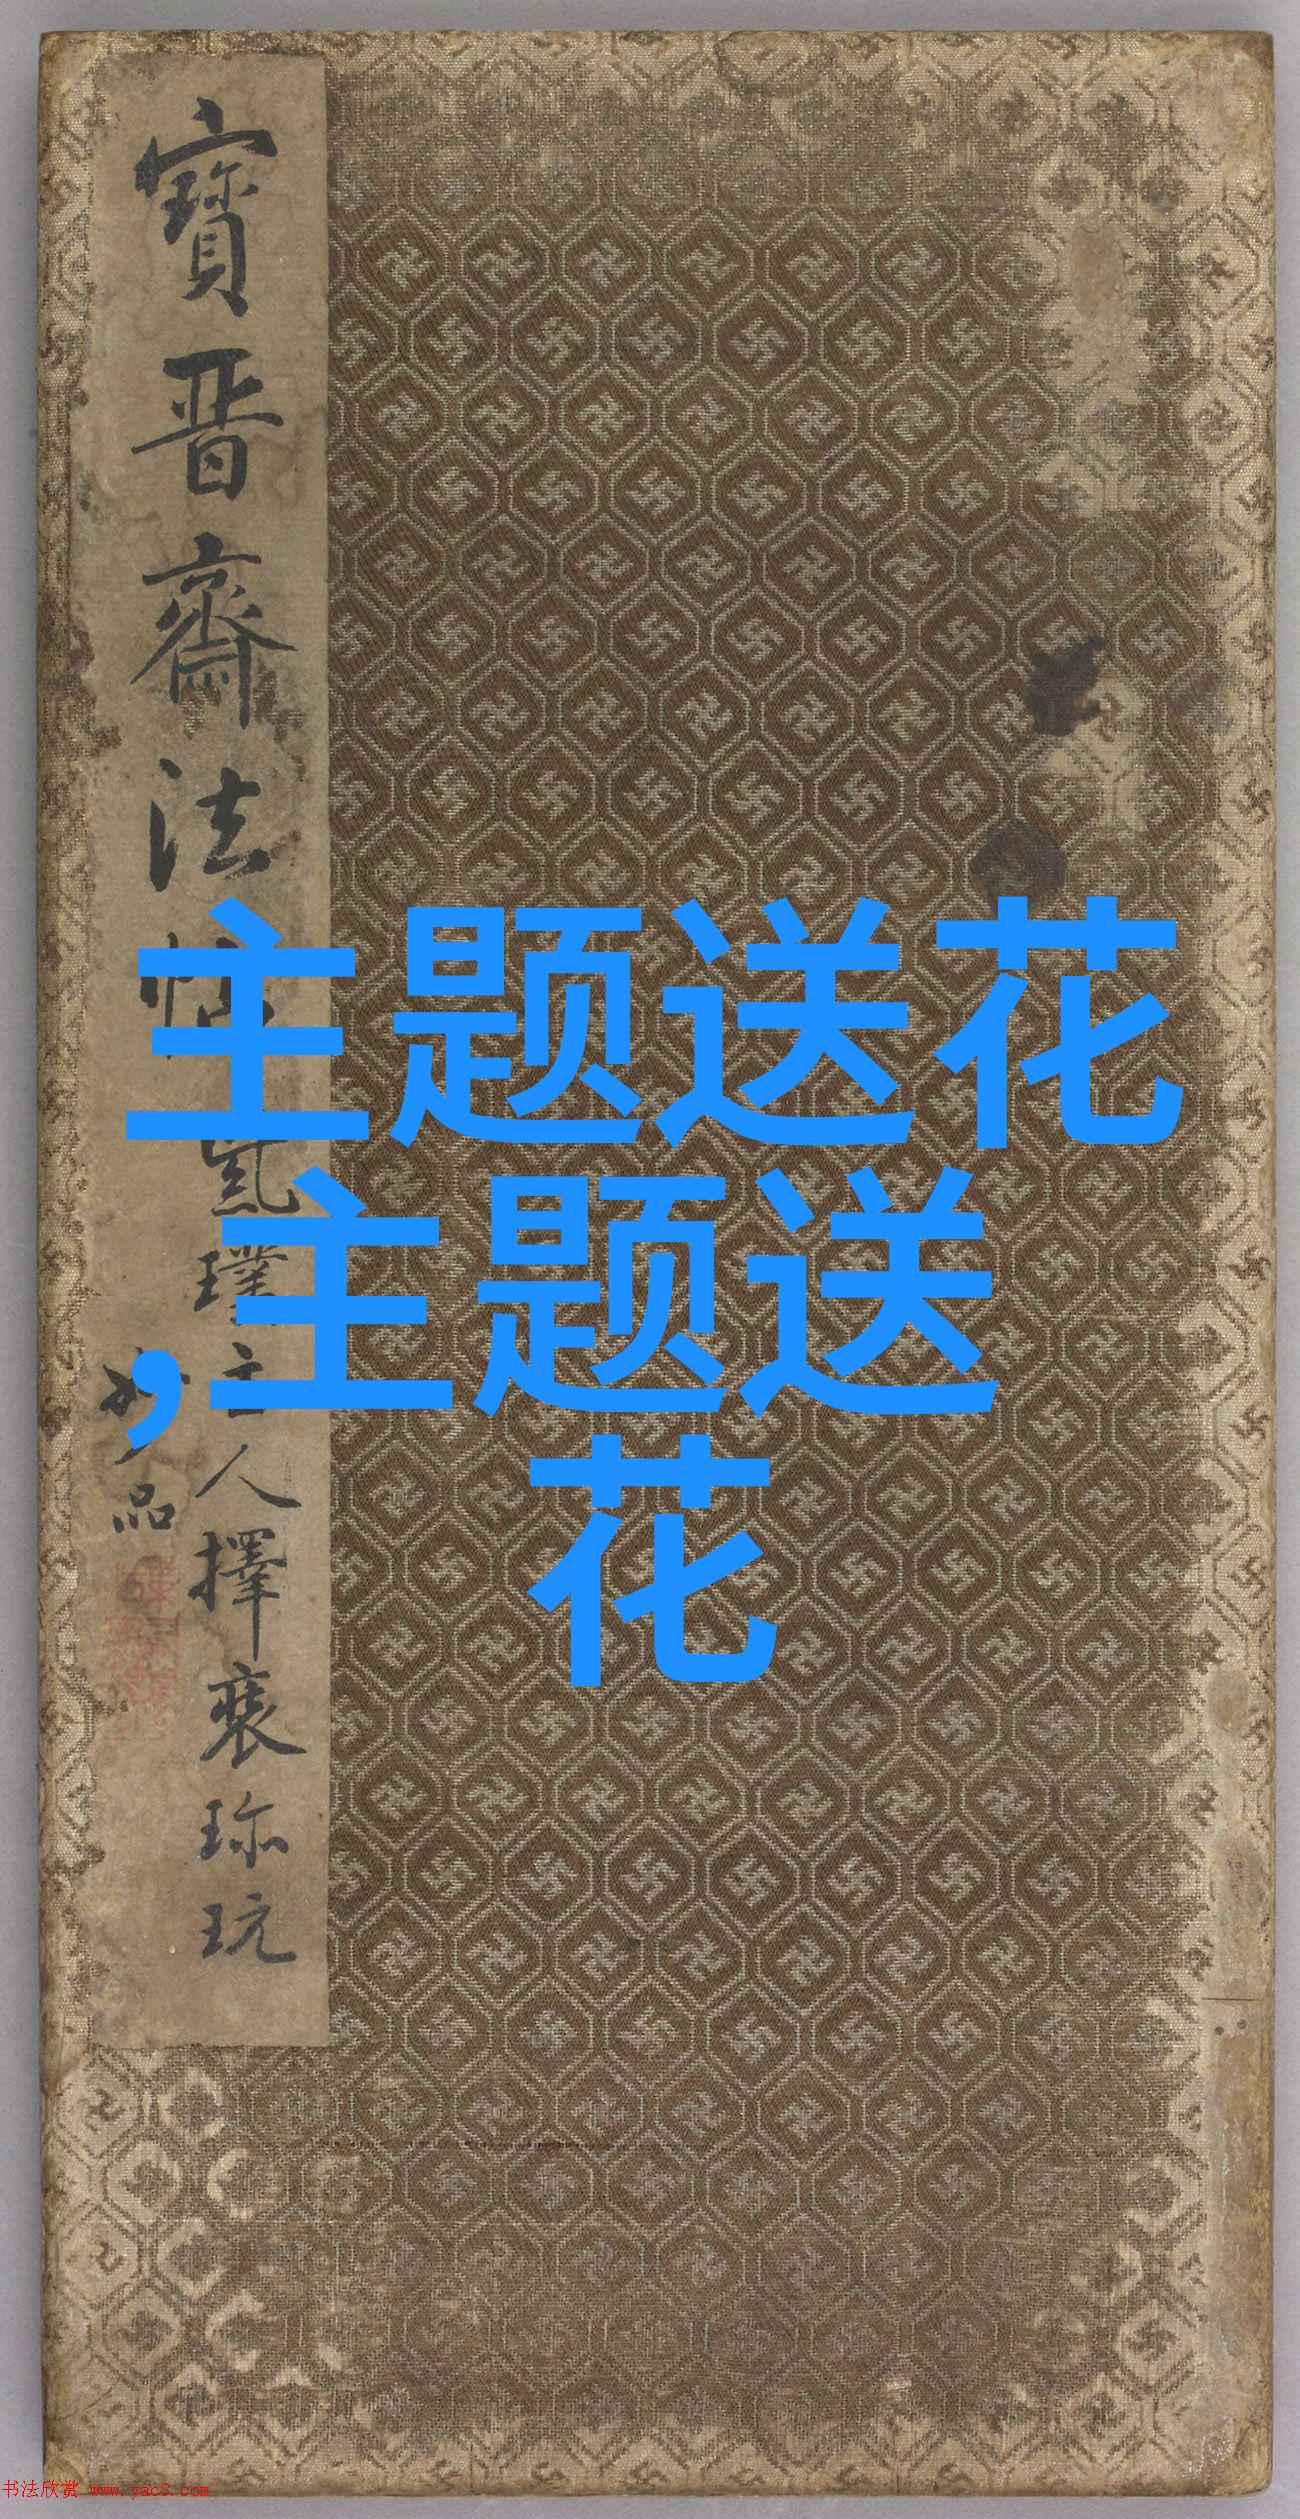 寶晉齋法帖
璞主人擇裘珎玩
妙品
主题送花
,主题送
花
书法欣赏 www.yac8.com